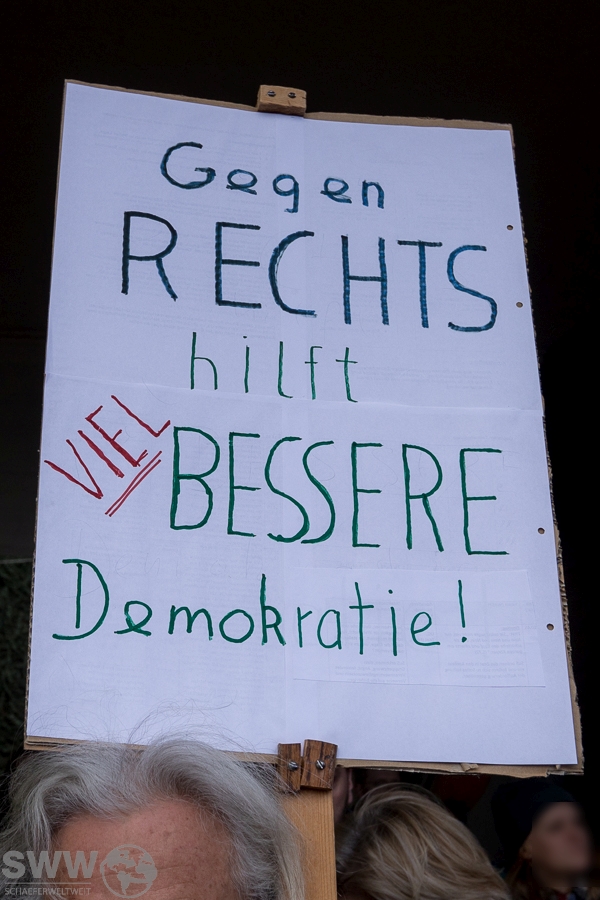 Gegen
RECHTS
hilft
VIEL
BESSERE
Demokratie!
SWW
SCHAEFERWELTWEIT